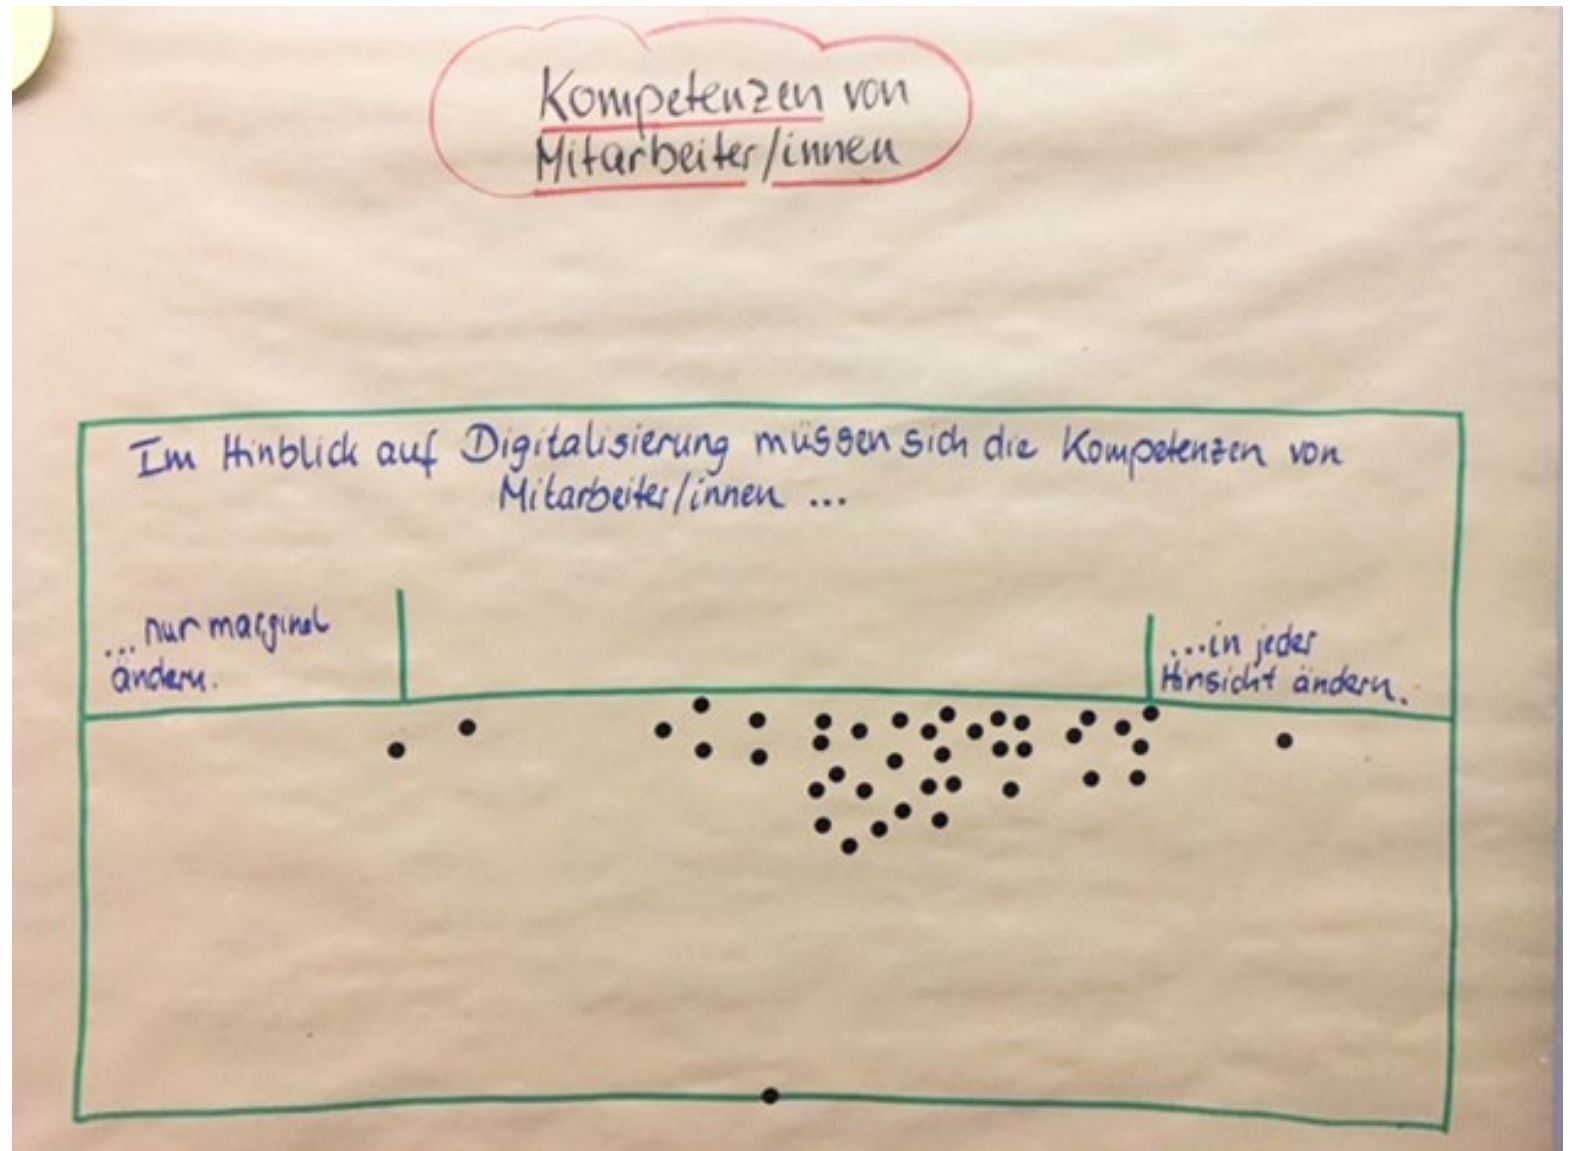 Kompetenzen von
Mitarbeiter/innen
Im Hinblick auf Digitalisierung müssen sich die Kompetenzen von
Mitarbeiter/innen ...
...nur marginal
ändern.
...in jeder
Hinsicht ändern.